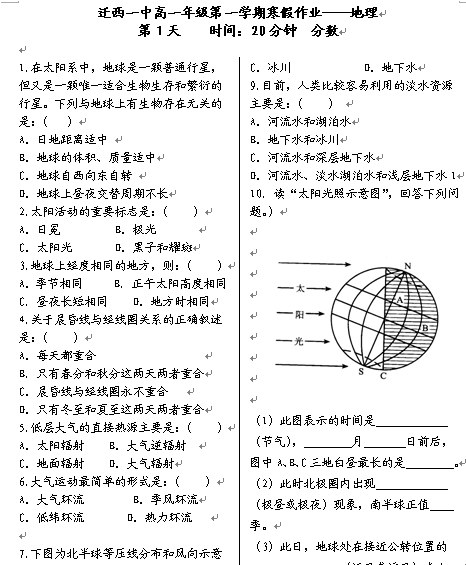 迁西一中高一年级第一学期寒假作业——地理
第1天 时间：20分钟 分数
1.在太阳系中，地球是一颗普通行星，
但又是一颗唯一适合生物生存和繁衍的
行星。下列与地球上有生物存在无关的
是：( )
A. 日地距离适中
B. 地球的体积、质量适中
C. 地球自西向东自转
D. 地球上昼夜交替周期不长
2.太阳活动的重要标志是：( )
A. 日冕 B. 极光
C. 太阳光 D. 黑子和耀斑
3.地球上经度相同的地方，则：( )
A. 季节相同 B. 正午太阳高度相同
C. 昼夜长短相同 D. 地方时相同
4.关于晨昏线与经线圈关系的正确叙述
是：( )
A. 每天都重合
B. 只有春分和秋分这两天两者重合
C. 晨昏线与经线圈永不重合
D. 只有冬至和夏至这两天两者重合
5.低层大气的直接热源主要是：( )
A. 太阳辐射 B. 大气逆辐射
C. 地面辐射 D. 大气辐射
6.大气运动最简单的形式是：( )
A. 大气环流 B. 季风环流
C. 低纬环流 D. 热力环流
7.下图为北半球等压线分布和风向示意
C. 冰川 D. 地下水
9.目前，人类比较容易利用的淡水资源
主要是：( )
A. 河流水和湖泊水
B. 地下水和冰川
C. 河流水和深层地下水
D. 河流水、淡水湖泊水和浅层地下水1
10. 读“太阳光照示意图”，回答下列问
题。）
N
太
A
阳
B
光
S
C
（1）此图表示的时间是________
(节气)，________月________日前后，
图中A、B、C三地白昼最长的是________。
（2）此时北极圈内出现________
（极昼或极夜）现象，南半球正值____
季。
（3）此日，地球处在接近公转位置的